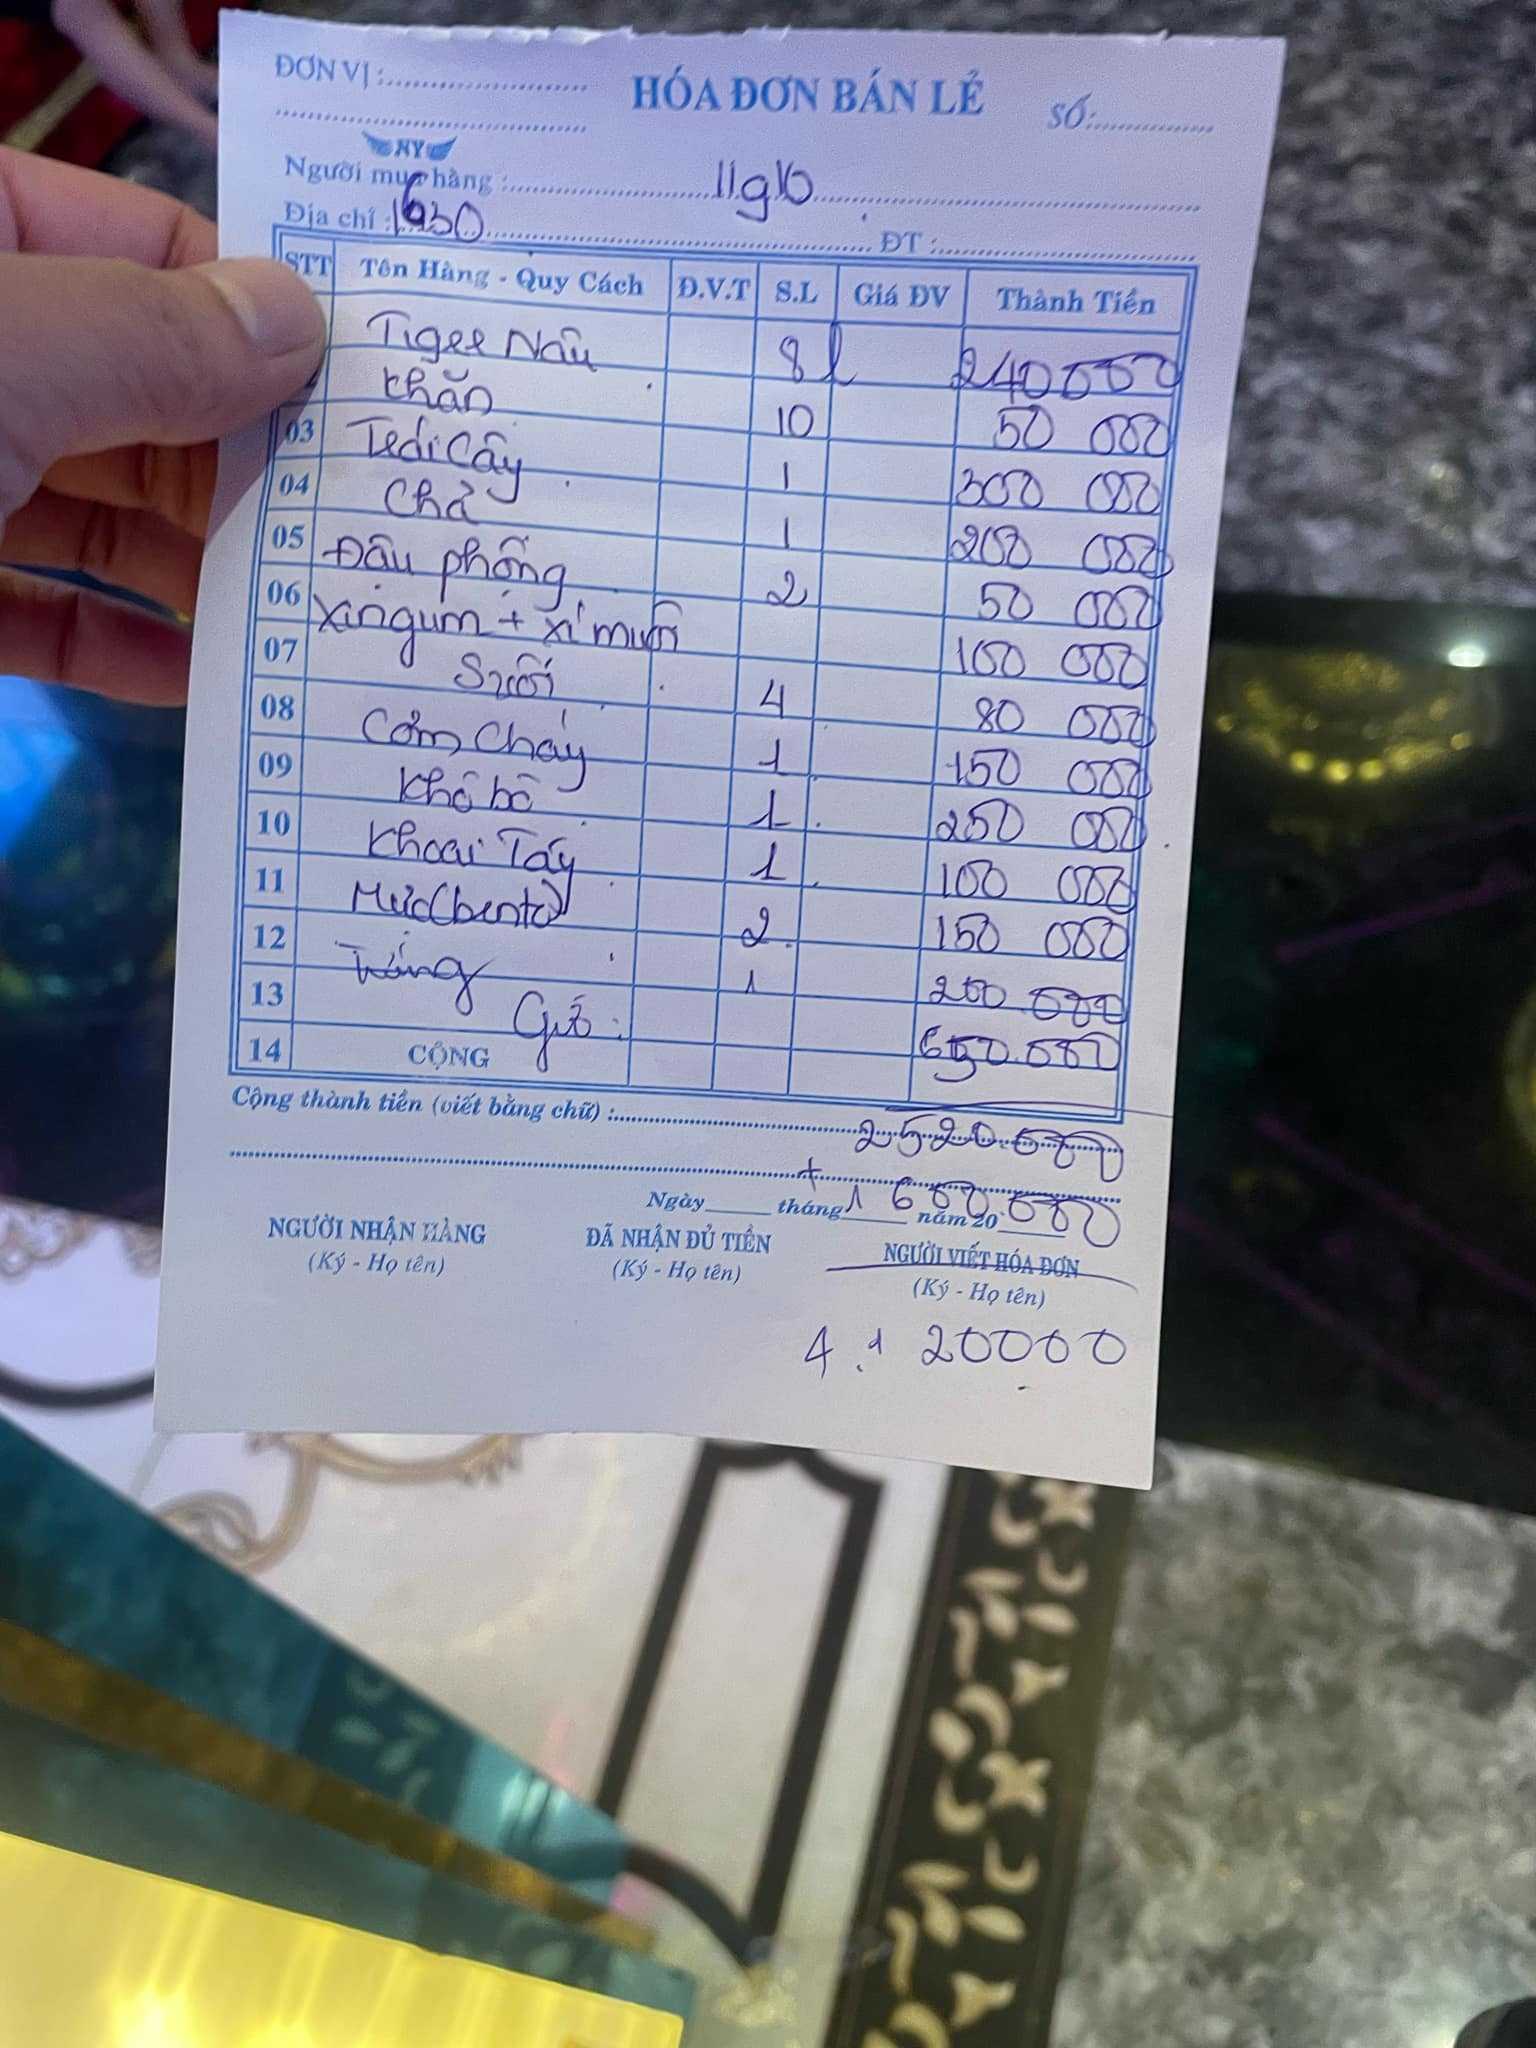 ĐƠN VỊ :
HÓA ĐƠN BÁN LẺ
SỐ:
NY
Người mua hàng : 11g10
Địa chỉ : 1630 ĐT :
STT Tên Hàng - Quy Cách Đ.V.T S.L Giá ĐV Thành Tiền
Tiger Nâu 8l 240000
Khăn 10 50 000
03 Trái Cây 1 300 000
04 Chả 1 200 000
05 Đậu phộng 2 50 000
06 Xingum + xí muội 100 000
07 Suối 4 80 000
08 Cơm Cháy 1 150 000
09 Khô bò 1 250 000
10 Khoai Tây 1 100 000
11 Mực(bento) 2 150 000
12 Trứng 1 200.000
13 Giờ : 650.000
14 CỘNG
Cộng thành tiền (viết bằng chữ) : 2520.000
+ 1 600.000
Ngày tháng năm 20
NGƯỜI NHẬN HÀNG ĐÃ NHẬN ĐỦ TIỀN NGƯỜI VIẾT HÓA ĐƠN
(Ký - Họ tên) (Ký - Họ tên) (Ký - Họ tên)
4.120000